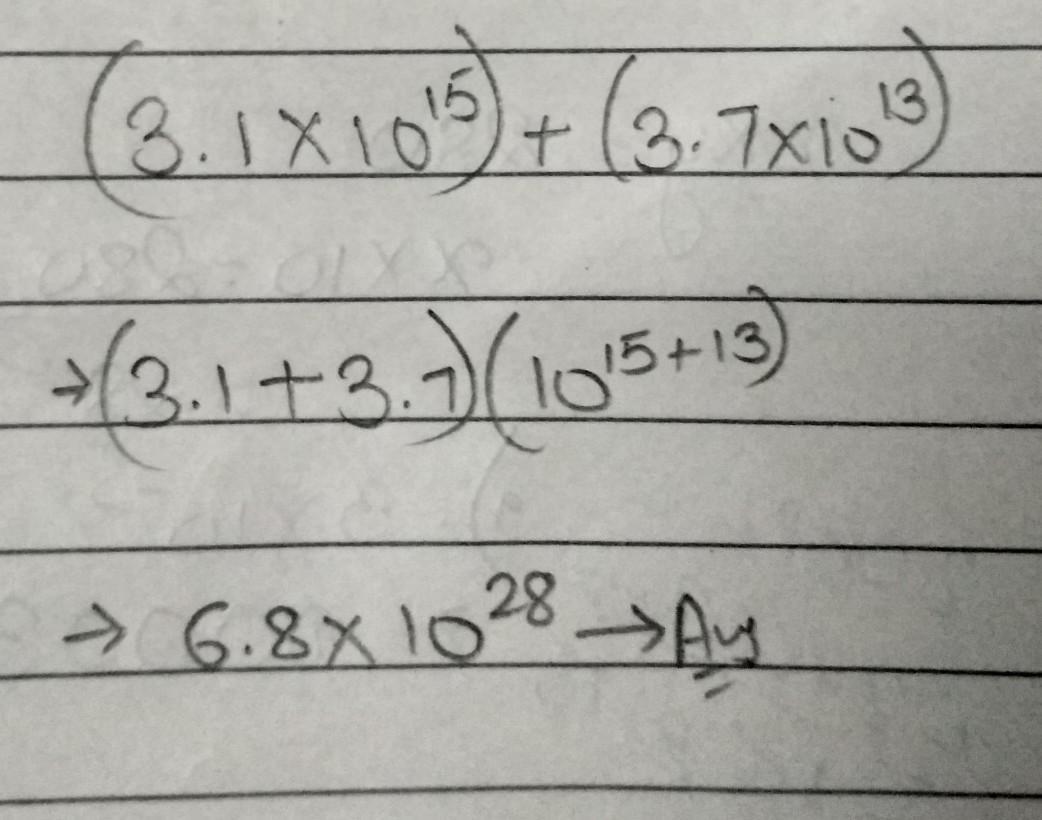 (3.1×10¹⁵)+(3.7×10¹³)
→(3.1+3.7)(10¹⁵⁺¹³)
→ 6.8×10²⁸ →Ans